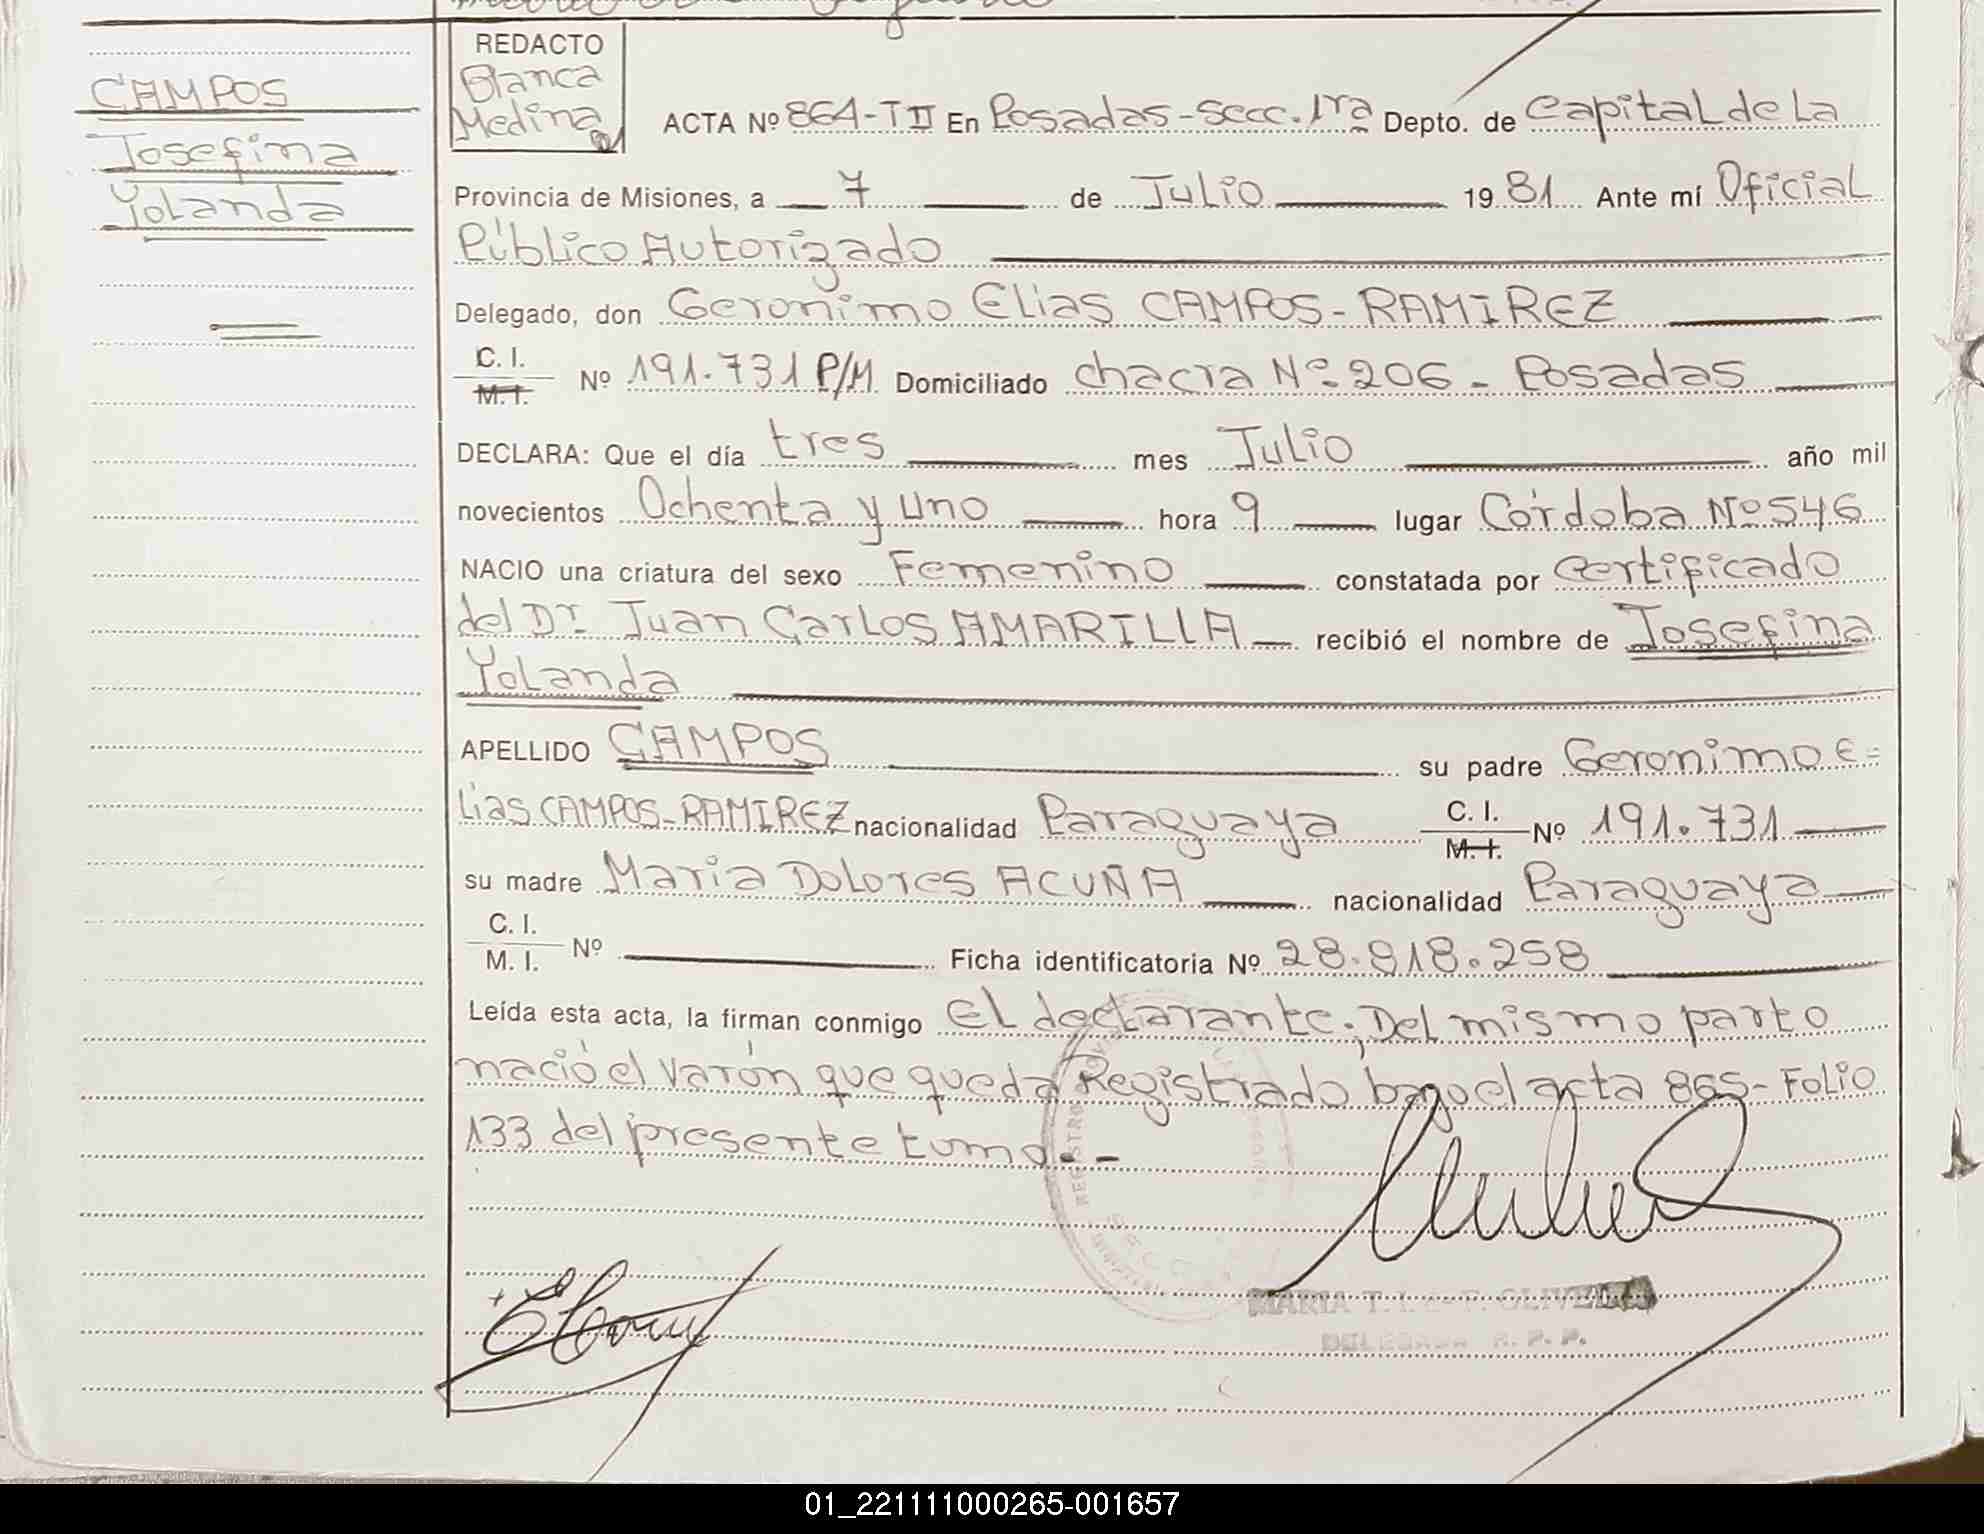 CAMPOS
Josefina
Yolanda
REDACTO
Blanca
Medina
ACTA Nº 864-TII En Posadas-Secc. 1ra Depto. de Capital de La
Provincia de Misiones, a 7 de Julio 1981 Ante mí Oficial
Público Autorizado
Delegado, don Geronimo Elias CAMPOS-RAMIREZ
C. I.
M. I. Nº 191.731 P/M Domiciliado chacra Nº 206 - Posadas
DECLARA: Que el día tres mes Julio año mil
novecientos Ochenta y uno hora 9 lugar Córdoba Nº 546
NACIO una criatura del sexo Femenino constatada por certificado
del Dr. Juan Carlos AMARILLA recibió el nombre de Josefina
Yolanda
APELLIDO CAMPOS su padre Geronimo E=
Lias CAMPOS-RAMIREZ nacionalidad Paraguaya C. I. M. I. Nº 191.731
su madre Maria Dolores ACUÑA nacionalidad Paraguaya
C. I.
M. I. Nº Ficha identificatoria Nº 28.818.258
Leída esta acta, la firman conmigo El declarante; Del mismo parto
nació el varón que queda Registrado bajo el acta 865 - Folio
133 del presente tumo.--
REGISTRO
MARIA T. OLIVEIRA
DELEGADA R. P. P.
01_221111000265-001657